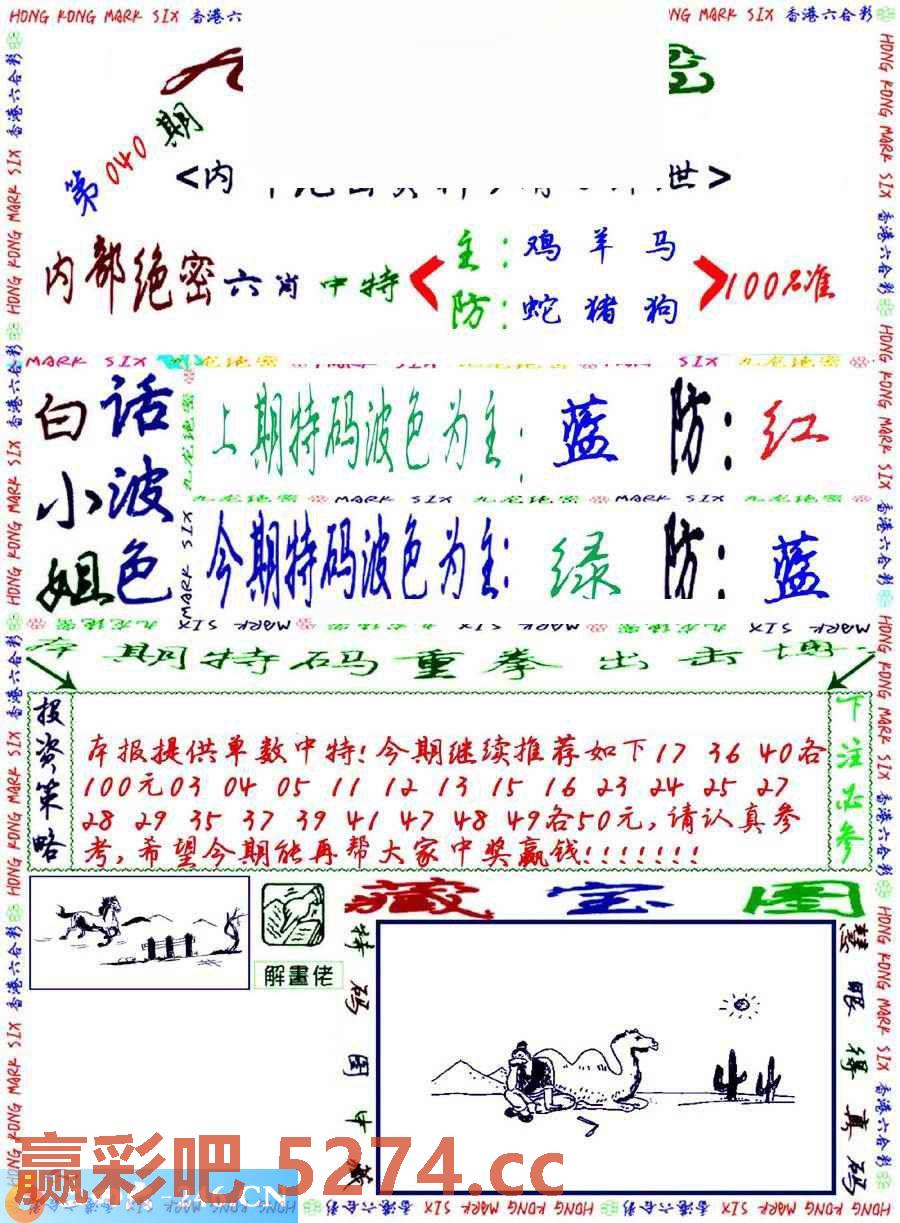 HONG KONG MARK SIX 香港六
NG MARK SIX 香港六合彩
第040期
<内
世>
内部绝密六肖中特
主:鸡羊马
防:蛇猪狗
100%准
MARK SIX
白小姐
话波色
上期特码波色为主:蓝 防:红
九龙绝密 MARK SIX 九龙绝密 MARK SIX 九龙绝密
今期特码波色为主:绿 防:蓝
本期特码重拳出击
投资策略
本报提供单数中特!今期继续推荐如下17 36 40各
100元03 04 05 11 12 13 15 16 23 24 25 27
28 29 35 37 39 41 47 48 49各50元,请认真参
考,希望今期能再帮大家中奖赢钱!!!!!!!
下注必参
解畫佬
藏宝图
特码图中藏
慧眼得真码
赢彩吧 5274.cc
HONG KONG MARK SIX 香港六合彩